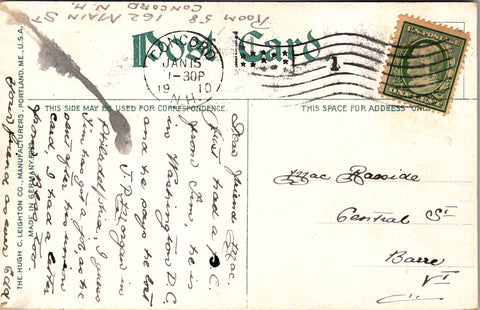 ROOM 58
162 MAIN ST
CONCORD
N.H.
Post Card
CONCORD
JAN 15
1-30P
1910
N.H.
1
U.S. POSTAGE
THIS SIDE MAY BE USED FOR CORRESPONDENCE.
THIS SPACE FOR ADDRESS ONLY.
THE HUGH C. LEIGHTON CO., MANUFACTURERS, PORTLAND, ME., U.S.A.
MADE IN GERMANY
Dear friend Mac.
Just had a P.C.
from Jim, he is
in Washington D.C.
and he says he lost
J.P. Morgan in
Philadelphia, I guess
Jim has got a job as he
sent after his union
card, I had a letter
from
Your friend as ever Edd.
Mac
Central St
Barre
Vt